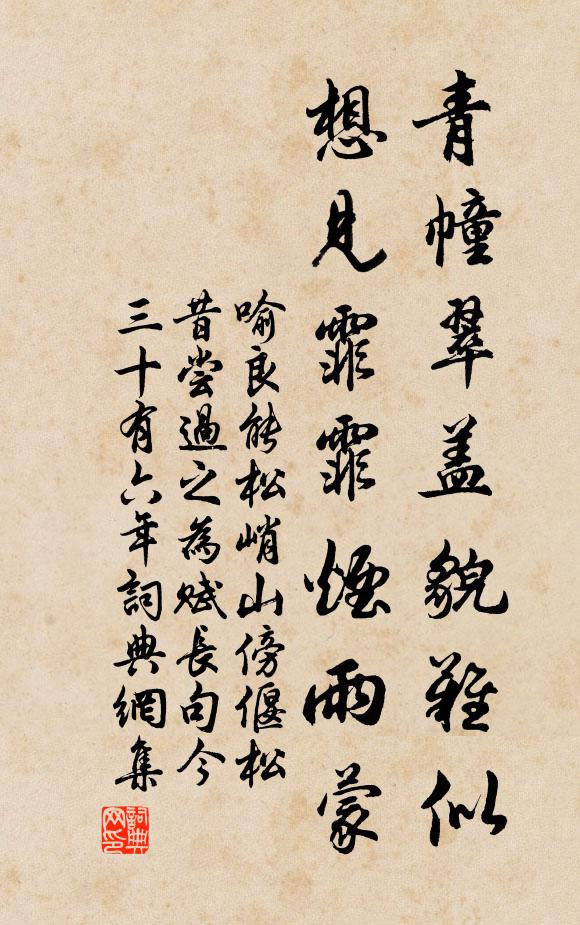 青幢翠盖貌难似
想見霏霏煙雨蒙
喻良能松峭山傍偃松
昔尝過之為赋長句今
三十有六年詞典網集
詞典网印